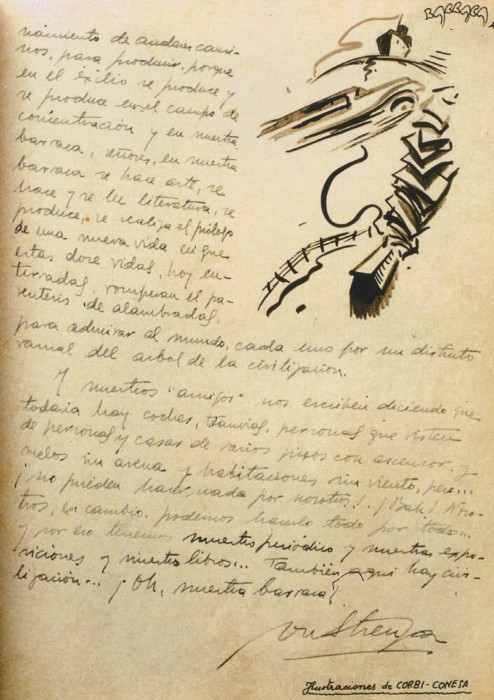 BARRACA
namiento de andam cami-
nos, para producir, porque
en el exilio se produce y
se produce en el campo de
concentración y en nuestra
barraca, señores, en nuestra
barraca se hace arte, se
hace y se lee literatura, se
produce, se realiza el prólogo
de una nueva vida en que
estas doce vidas, hoy en-
terradas, romperan el pa-
rentesis de alambradas,
para admirar al mundo, cada uno por un distinto
ramal del arbol de la civilizacion.
Y nuestros "amigos" nos escriben diciendo que
todavia hay coches, tranvias, personas que visten
de personas y casas de varios pisos con ascensor, y
suelos sin arena y habitaciones sin viento, pero...
¡no pueden hacer nada por nosotros! ¡Bah! Noso-
tros, en cambio, podemos hacerlo todo por todos...
y por eso tenemos nuestro periódico y nuestras expo-
siciones y nuestros libros... También aqui hay civi-
lización... ¡Oh, nuestra barraca!
Ilustraciones de CORBI-CONESA